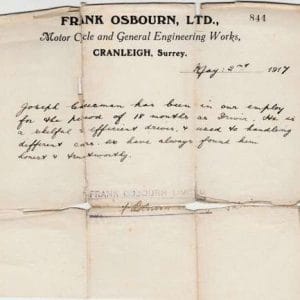 FRANK OSBOURN, LTD.,
844
Motor Cycle and General Engineering Works,
CRANLEIGH, Surrey.
May: 2nd 1917
Joseph has been in our employ
for the period of 18 months as Driver. He is
a skilful & efficient driver, & used to handling
different cars. We have always found him
honest & trustworthy.
FRANK OSBOURN LIMITED